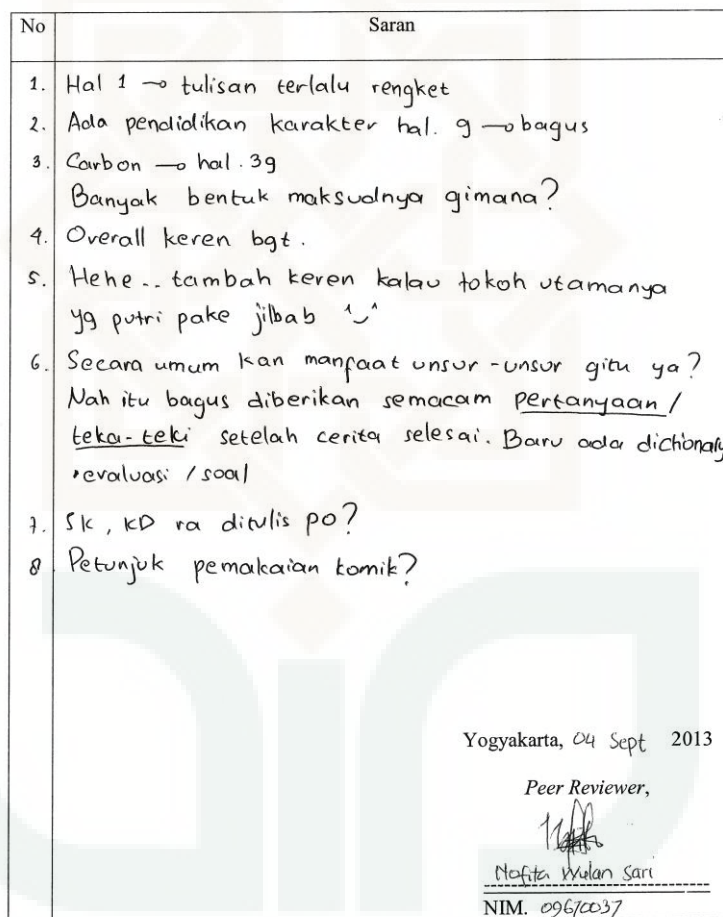 No Saran
1. Hal 1 → tulisan terlalu rengket
2. Ada pendidikan karakter hal. 9 → bagus
3. Carbon → hal. 39
Banyak bentuk maksudnya gimana?
4. Overall keren bgt.
5. Hehe.. tambah keren kalau tokoh utamanya
yg putri pake jilbab ^‿^
6. Secara umum kan manfaat unsur-unsur gitu ya?
Nah itu bagus diberikan semacam pertanyaan /
teka-teki setelah cerita selesai. Baru ada dictionary
•evaluasi / soal
7. SK, KD ra ditulis po?
8 Petunjuk pemakaian komik?
Yogyakarta, 04 Sept 2013
Peer Reviewer,
Nofita Wulan Sari
NIM. 09670037